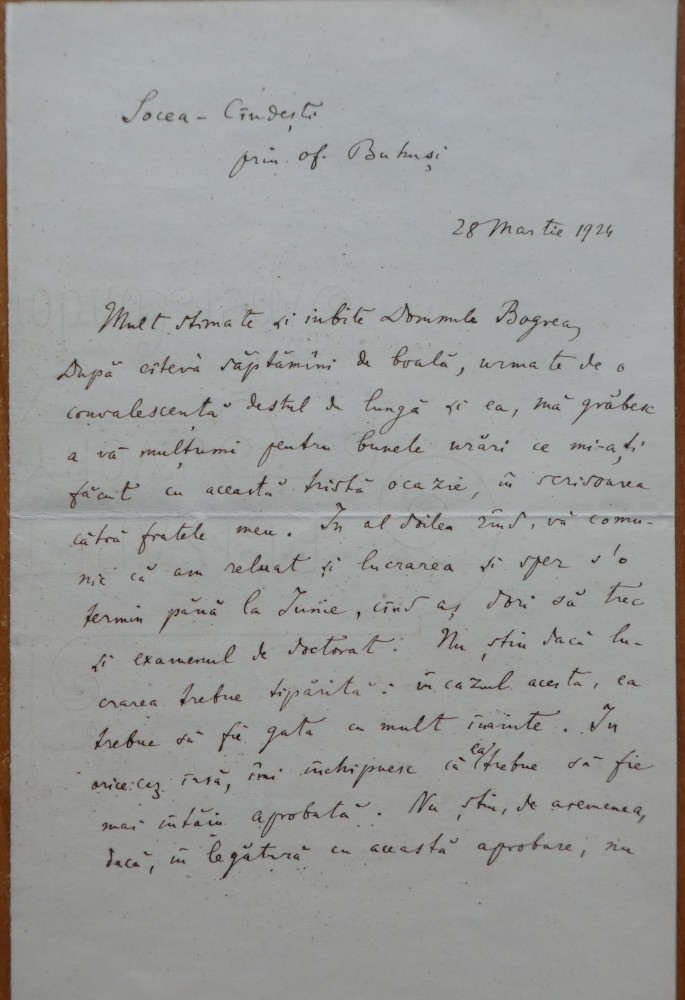 Socea - Cîndești
prin of. Buhuși
28 Martie 1924
Mult stimate și iubite Domnule Bogrea,
După cîteva săptămîni de boală, urmate de o
convalescență destul de lungă și ea, mă grăbesc
a vă mulțumi pentru bunele urări ce mi-ați
făcut cu această tristă ocazie, în scrisoarea
cătră fratele meu. În al doilea rînd, vă comu-
nic că am reluat și lucrarea și sper s'o
termin până la Iunie, cînd aș dori să trec
și examenul de doctorat. Nu știu dacă lu-
crarea trebue tipărită: în cazul acesta, ea
trebue să fie gata cu mult înainte. În
orice caz însă, îmi închipuesc că ea trebue să fie
mai întăiu aprobată. Nu știu, de asemenea,
dacă, în legătură cu această aprobare, nu